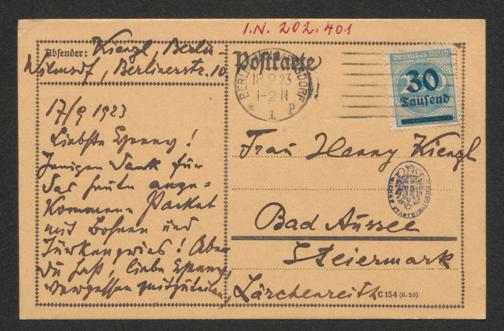 I.N. 202.401
Absender: Kienzl, Berlin
Wilmsdf, Berlinerstr. 10
Postkarte
BERLIN
DORF
18 9 23
1-2 N
* 1 P
Deutsches Reich
30
Tausend
17/9 1923
Liebste Henny!
Innigen Dank für
das heute ange-
kommene Packet
mit Bohnen und
Türkengries! Aber
du hast, liebe Henny,
vergessen mitzuteilen,
Frau Henny Kienzl
Bad Aussee
Steiermark
Lärchenreith
C 154 (6. 20)